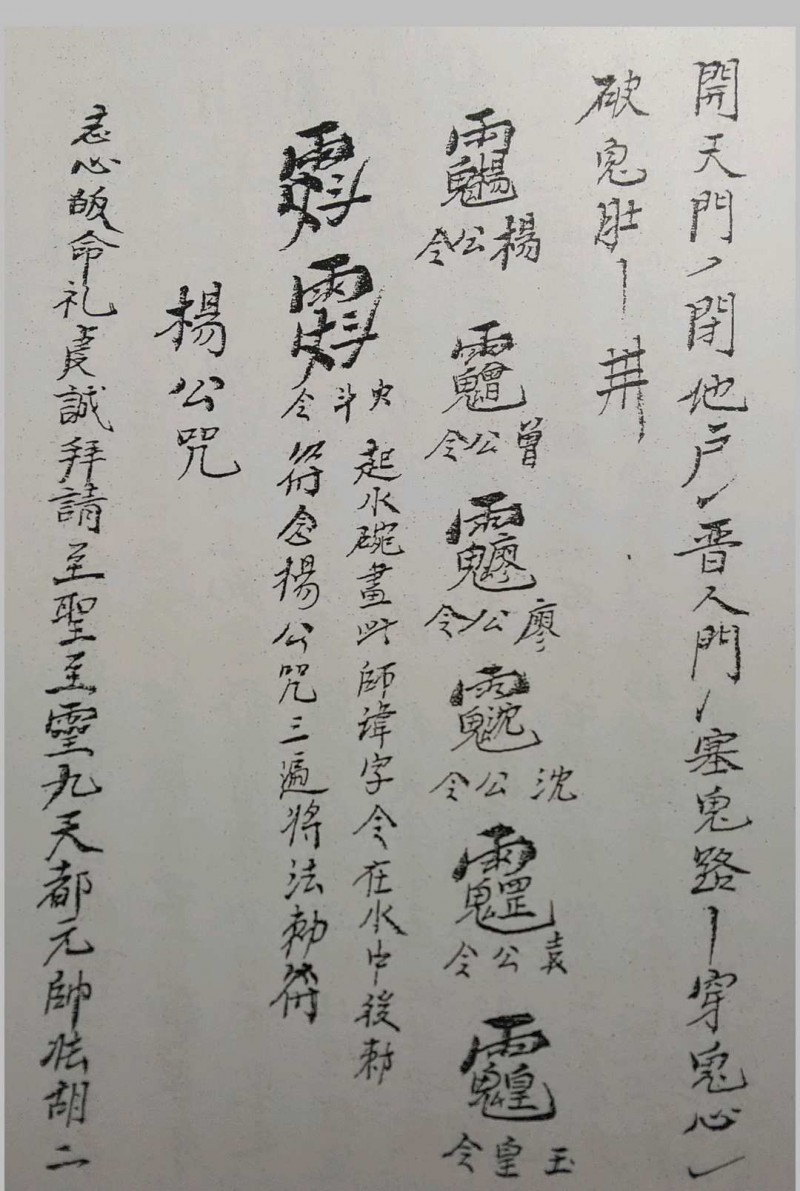 開天門丿閉地户丿晋人門丿塞鬼路丨穿鬼心乀
破鬼肚丨井
楊公令
曾公令
廖公令
沈公令
袁公令
玉皇令
火斗令
起水碗畫此師諱字令在水中後勅
符念楊公咒三遍將法勅符
楊公咒
志心皈命礼虔誠拜請至聖至靈九天都元帥張胡二